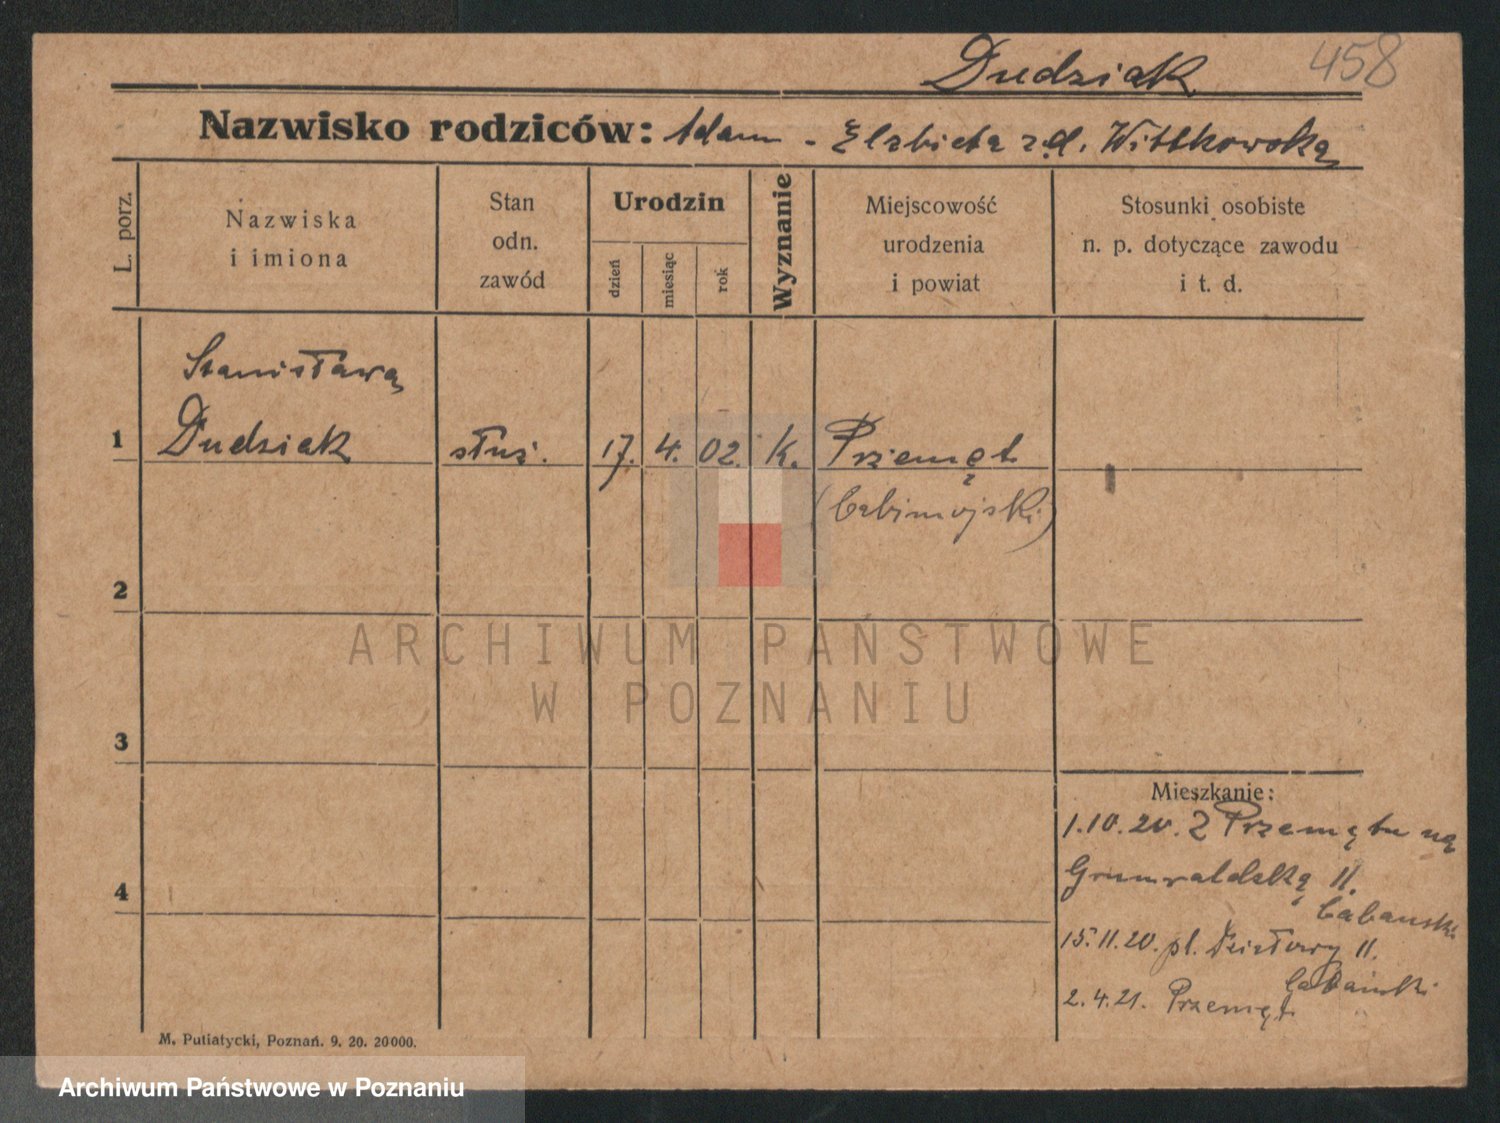 Dudziak 458
Nazwisko rodziców: Adam - Elzbieta z d. Wittkowska
L. porz.
Nazwiska
i imiona
Stan
odn.
zawód
Urodzin
dzień
miesiąc
rok
Wyznanie
Miejscowość
urodzenia
i powiat
Stosunki osobiste
n. p. dotyczące zawodu
i t. d.
Stanisława
1 Dudziak służ. 17. 4. 02. K. Przemęt
(babimojski)
2
3
4
Mieszkanie:
1.10.20. Z Przemętu na
Grunwaldzką 11.
Cabanski
15.11.20. pl. Działowy 11.
Cabański
2.4.21. Przemęt
M. Putiatycki, Poznań. 9. 20. 20000.
ARCHIWUM PAŃSTWOWE
W POZNANIU
Archiwum Państwowe w Poznaniu